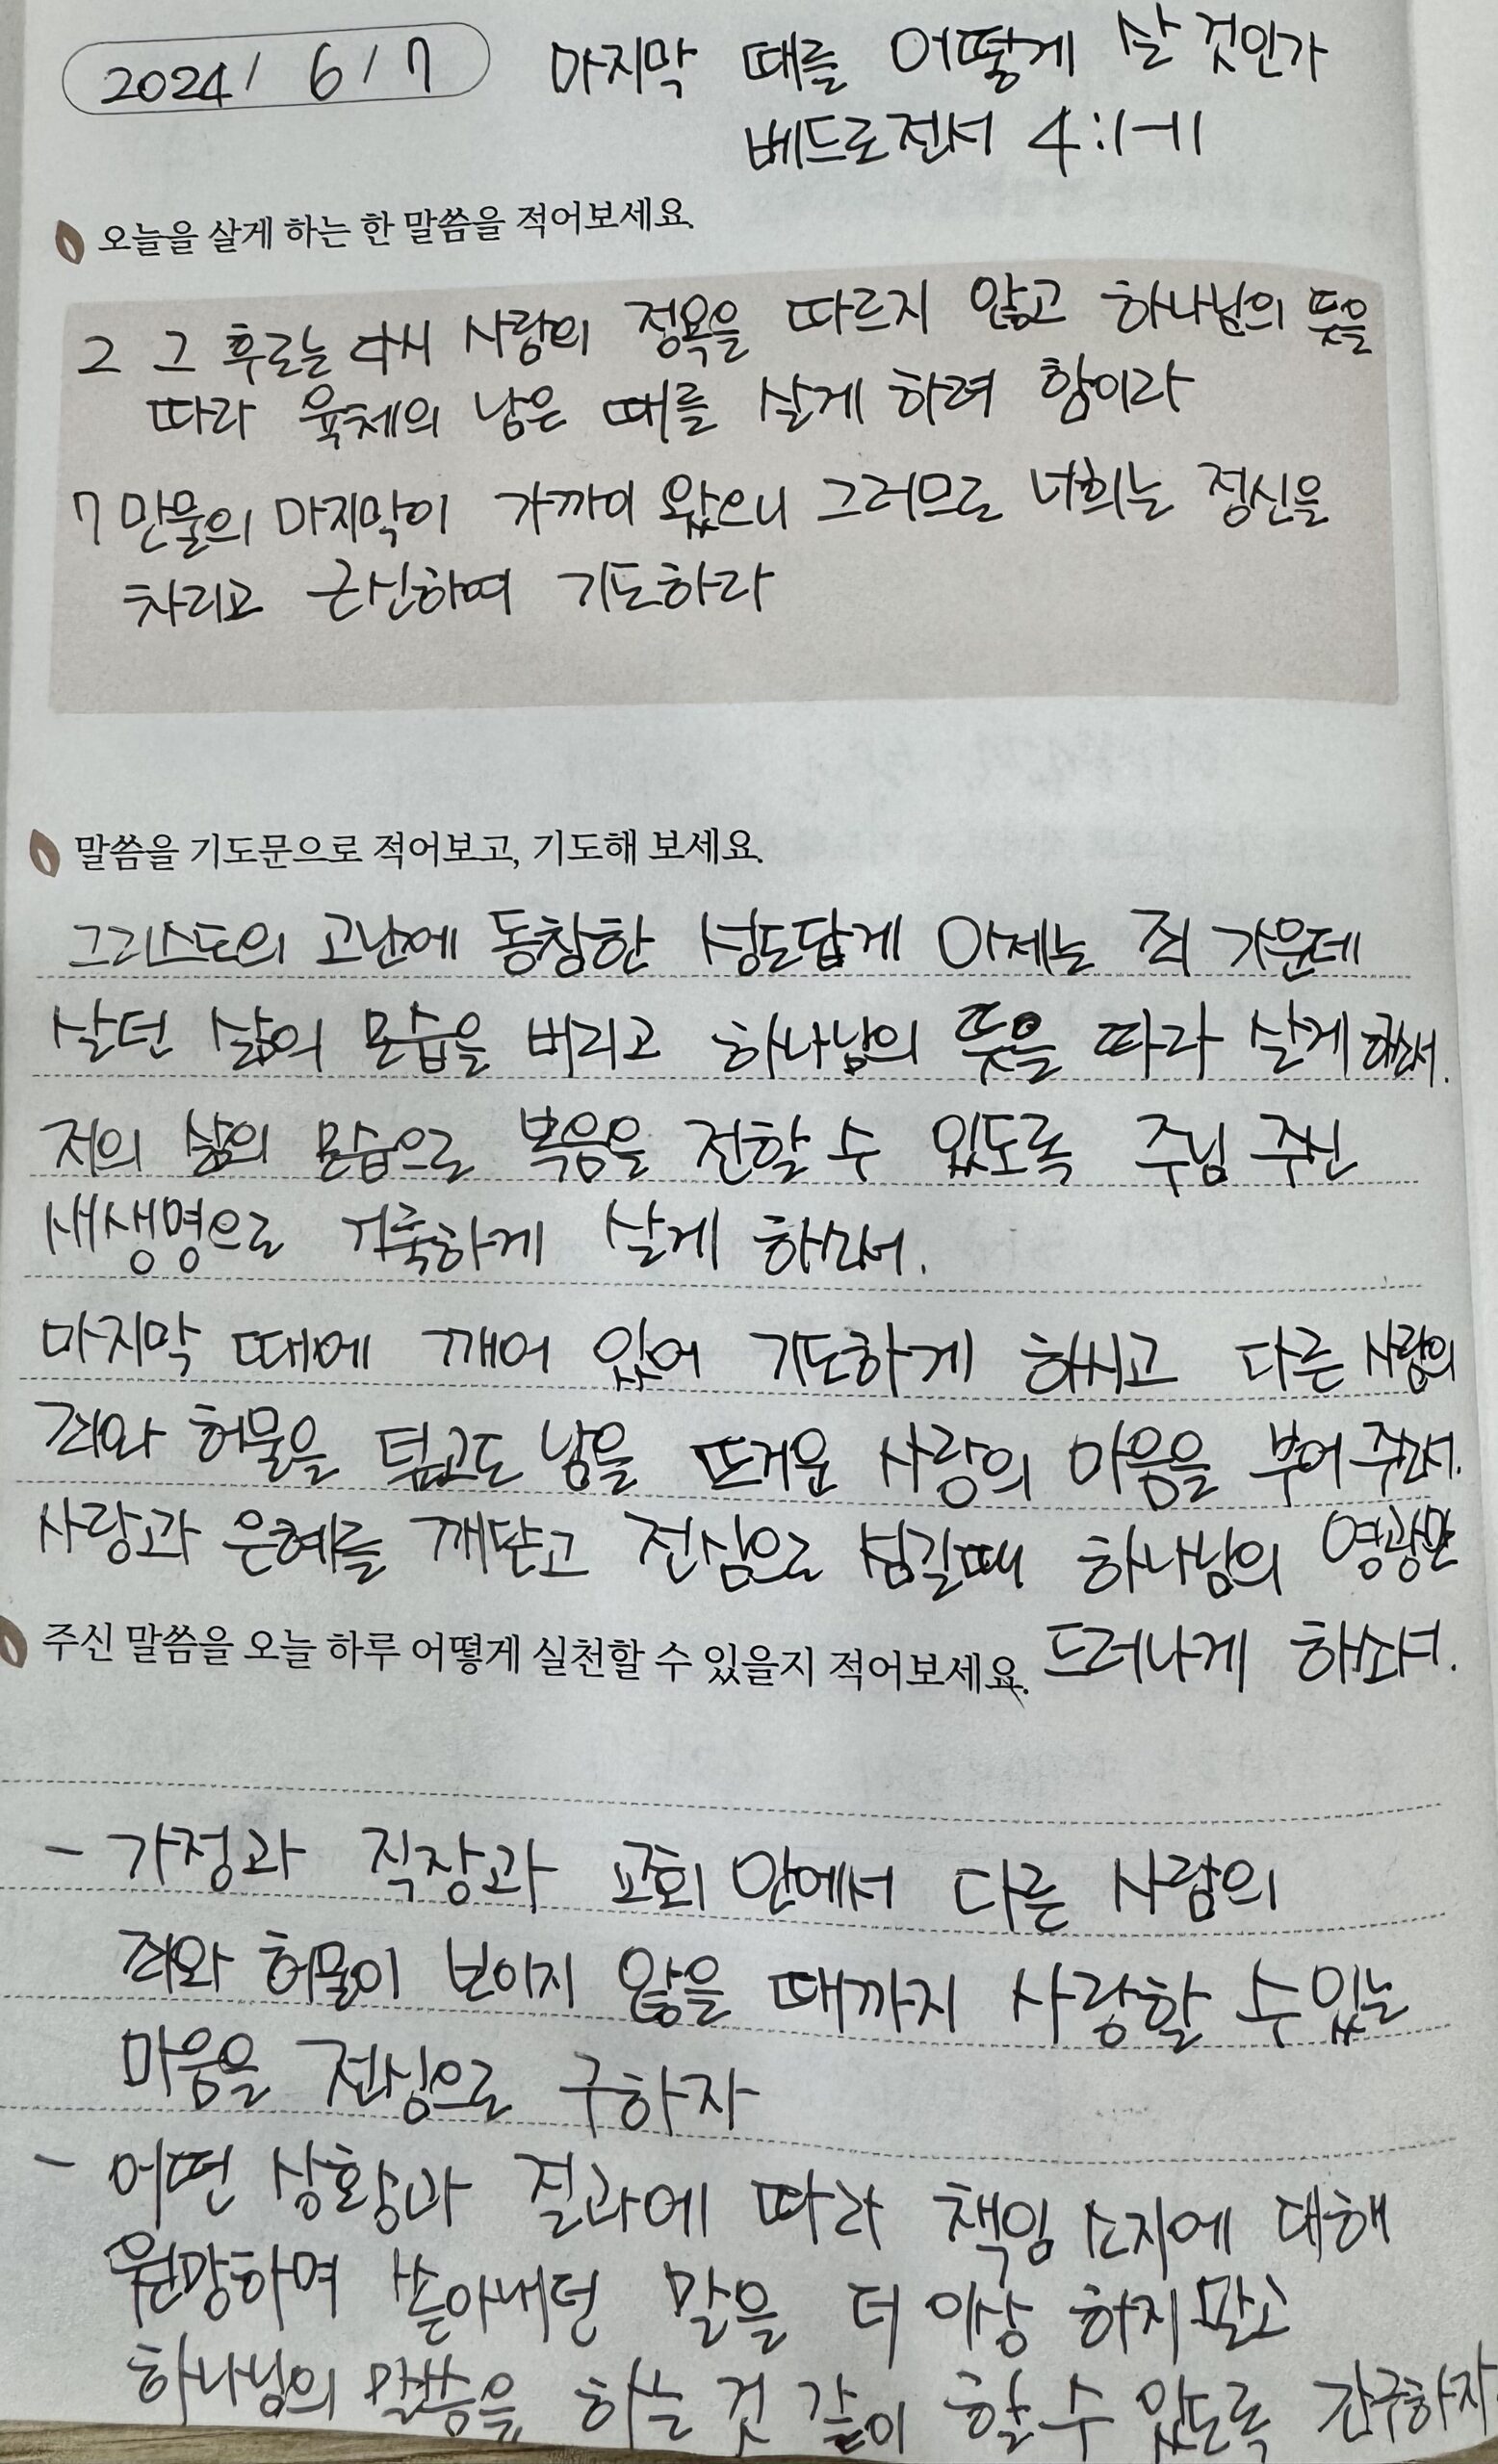 2024/ 6/7 마지막 때를 어떻게 살 것인가
베드로전서 4:1-11
오늘을 살게 하는 한 말씀을 적어보세요.
2 그 후로는 다시 사람의 정욕을 따르지 않고 하나님의 뜻을
따라 육체의 남은 때를 살게 하려 함이라
7 만물의 마지막이 가까이 왔으니 그러므로 너희는 정신을
차리고 근신하여 기도하라
말씀을 기도문으로 적어보고, 기도해 보세요.
그리스도의 고난에 동참한 성도답게 이제는 죄 가운데
살던 삶의 모습을 버리고 하나님의 뜻을 따라 살게 하소서.
저의 삶의 모습으로 복음을 전할 수 있도록 주님 주신
새생명으로 거룩하게 살게 하소서.
마지막 때에 깨어 있어 기도하게 하시고 다른 사람의
죄와 허물을 덮고도 남을 뜨거운 사랑의 마음을 부어 주소서.
사랑과 은혜를 깨닫고 전심으로 섬길때 하나님의 영광만
드러나게 하소서.
주신 말씀을 오늘 하루 어떻게 실천할 수 있을지 적어보세요.
- 가정과 직장과 교회 안에서 다른 사람의
죄와 허물이 보이지 않을 때까지 사랑할 수있는
마음을 전심으로 구하자
- 어떤 상황과 결과에 따라 책임 소지에 대해
원망하며 쏟아내던 말을 더 이상 하지 말고
하나님의 말씀을 하는 것 같이 할 수 있도록 간구하자